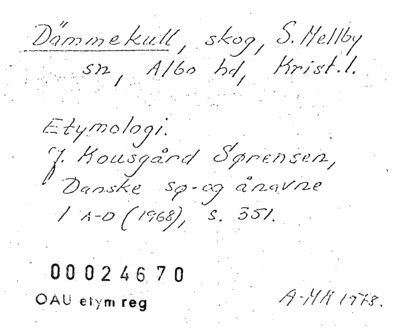 Dämmekull, skog, S. Mellby
sn, Albo hd, Krist. l.
Etymologi.
J. Kousgård Sørensen,
Danske sø- og ånavne
1 A-D (1968), s. 351.
00024670
OAU etym reg
A-MH 1978.